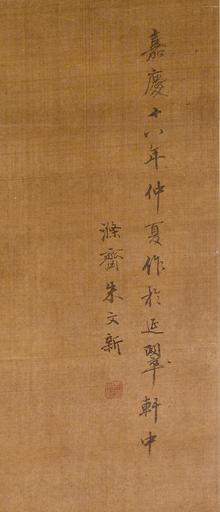 嘉慶十八年仲夏作於延翠軒中
滌齋朱文新